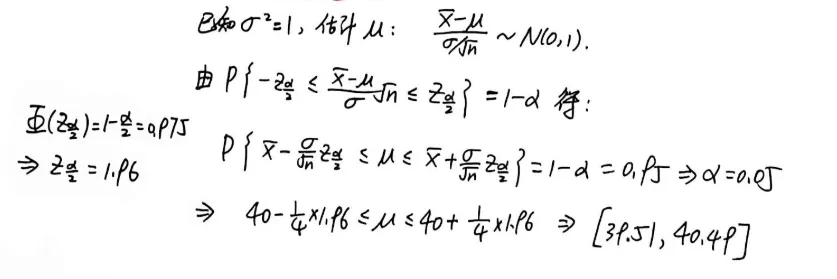 已知σ²=1, 估计μ: (x̄-μ)/(σ/√n) ~ N(0,1).
由 P{-z_{α/2} ≤ (x̄-μ)/σ √n ≤ z_{α/2}} = 1-α 得:
Φ(z_{α/2})=1-α/2=0.975
⇒ z_{α/2} = 1.96
P{x̄-σ/√n z_{α/2} ≤ μ ≤ x̄+σ/√n z_{α/2}} = 1-α = 0.95 ⇒ α=0.05
⇒ 40-1/4×1.96 ≤ μ ≤ 40+1/4×1.96 ⇒ [39.51, 40.49]